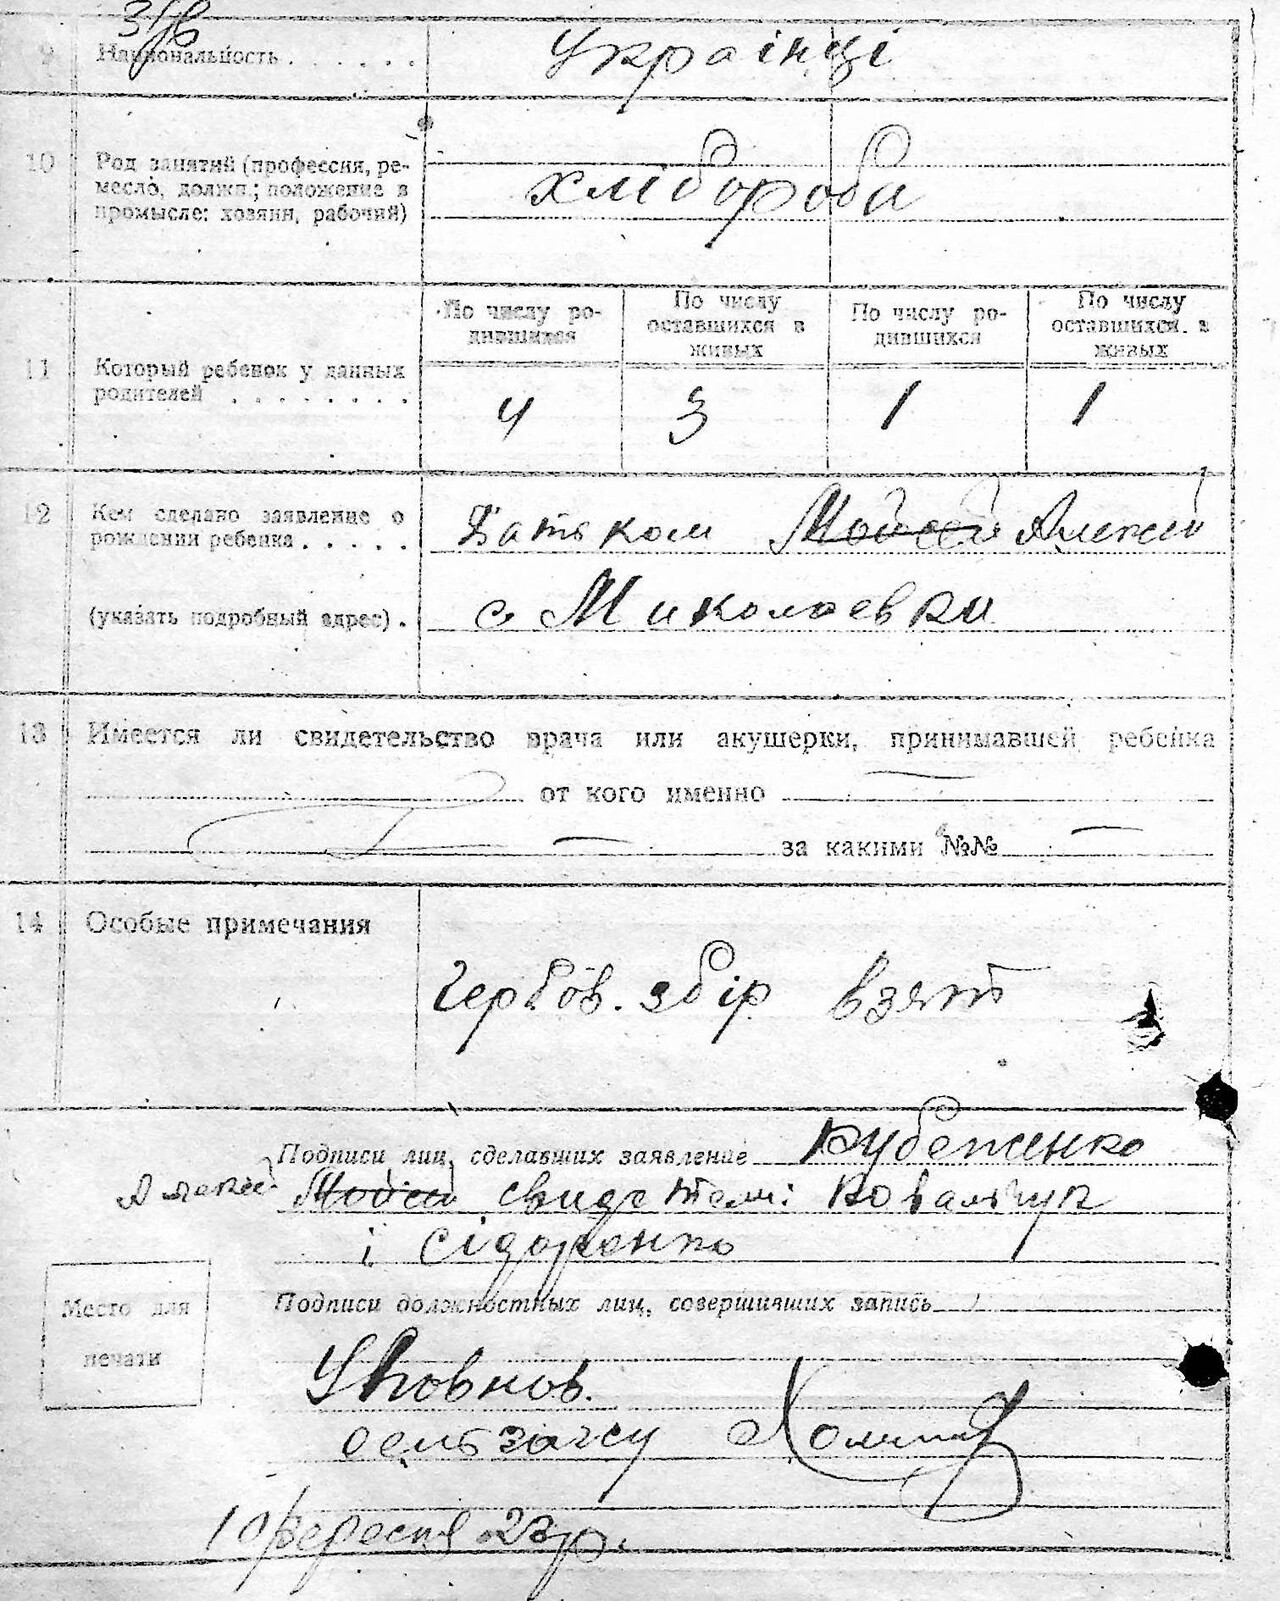 9 Национальность . . . . . . Українці
10 Род занятий (профессия, ре-
месло, должн.; положение в
промысле: хозяин, рабочий)
хлібороби
По числу ро-
дившихся
По числу
оставшихся в
живых
По числу ро-
дившихся
По числу
оставшихся в
живых
11 Который ребенок у данных
родителей . . . . . . . .
4 3 1 1
12 Кем сделано заявление о
рождении ребенка . . . . .
Батьком Мойсей Алексей
(указать подробный адрес) .
с Миколаевки
13 Имеется ли свидетельство врача или акушерки, принимавшей ребенка
от кого именно
за какими №№
14 Особые примечания
Гербов. збір взят
Подписи лиц, сделавших заявление Рубеженко
Алексей Мойсей свидетелі Ковальчук
і Сідоренко
Место для
печати
Подписи должностных лиц, совершивших запись
Уповнов.
сельзагсу
10 Вересня 23 р.